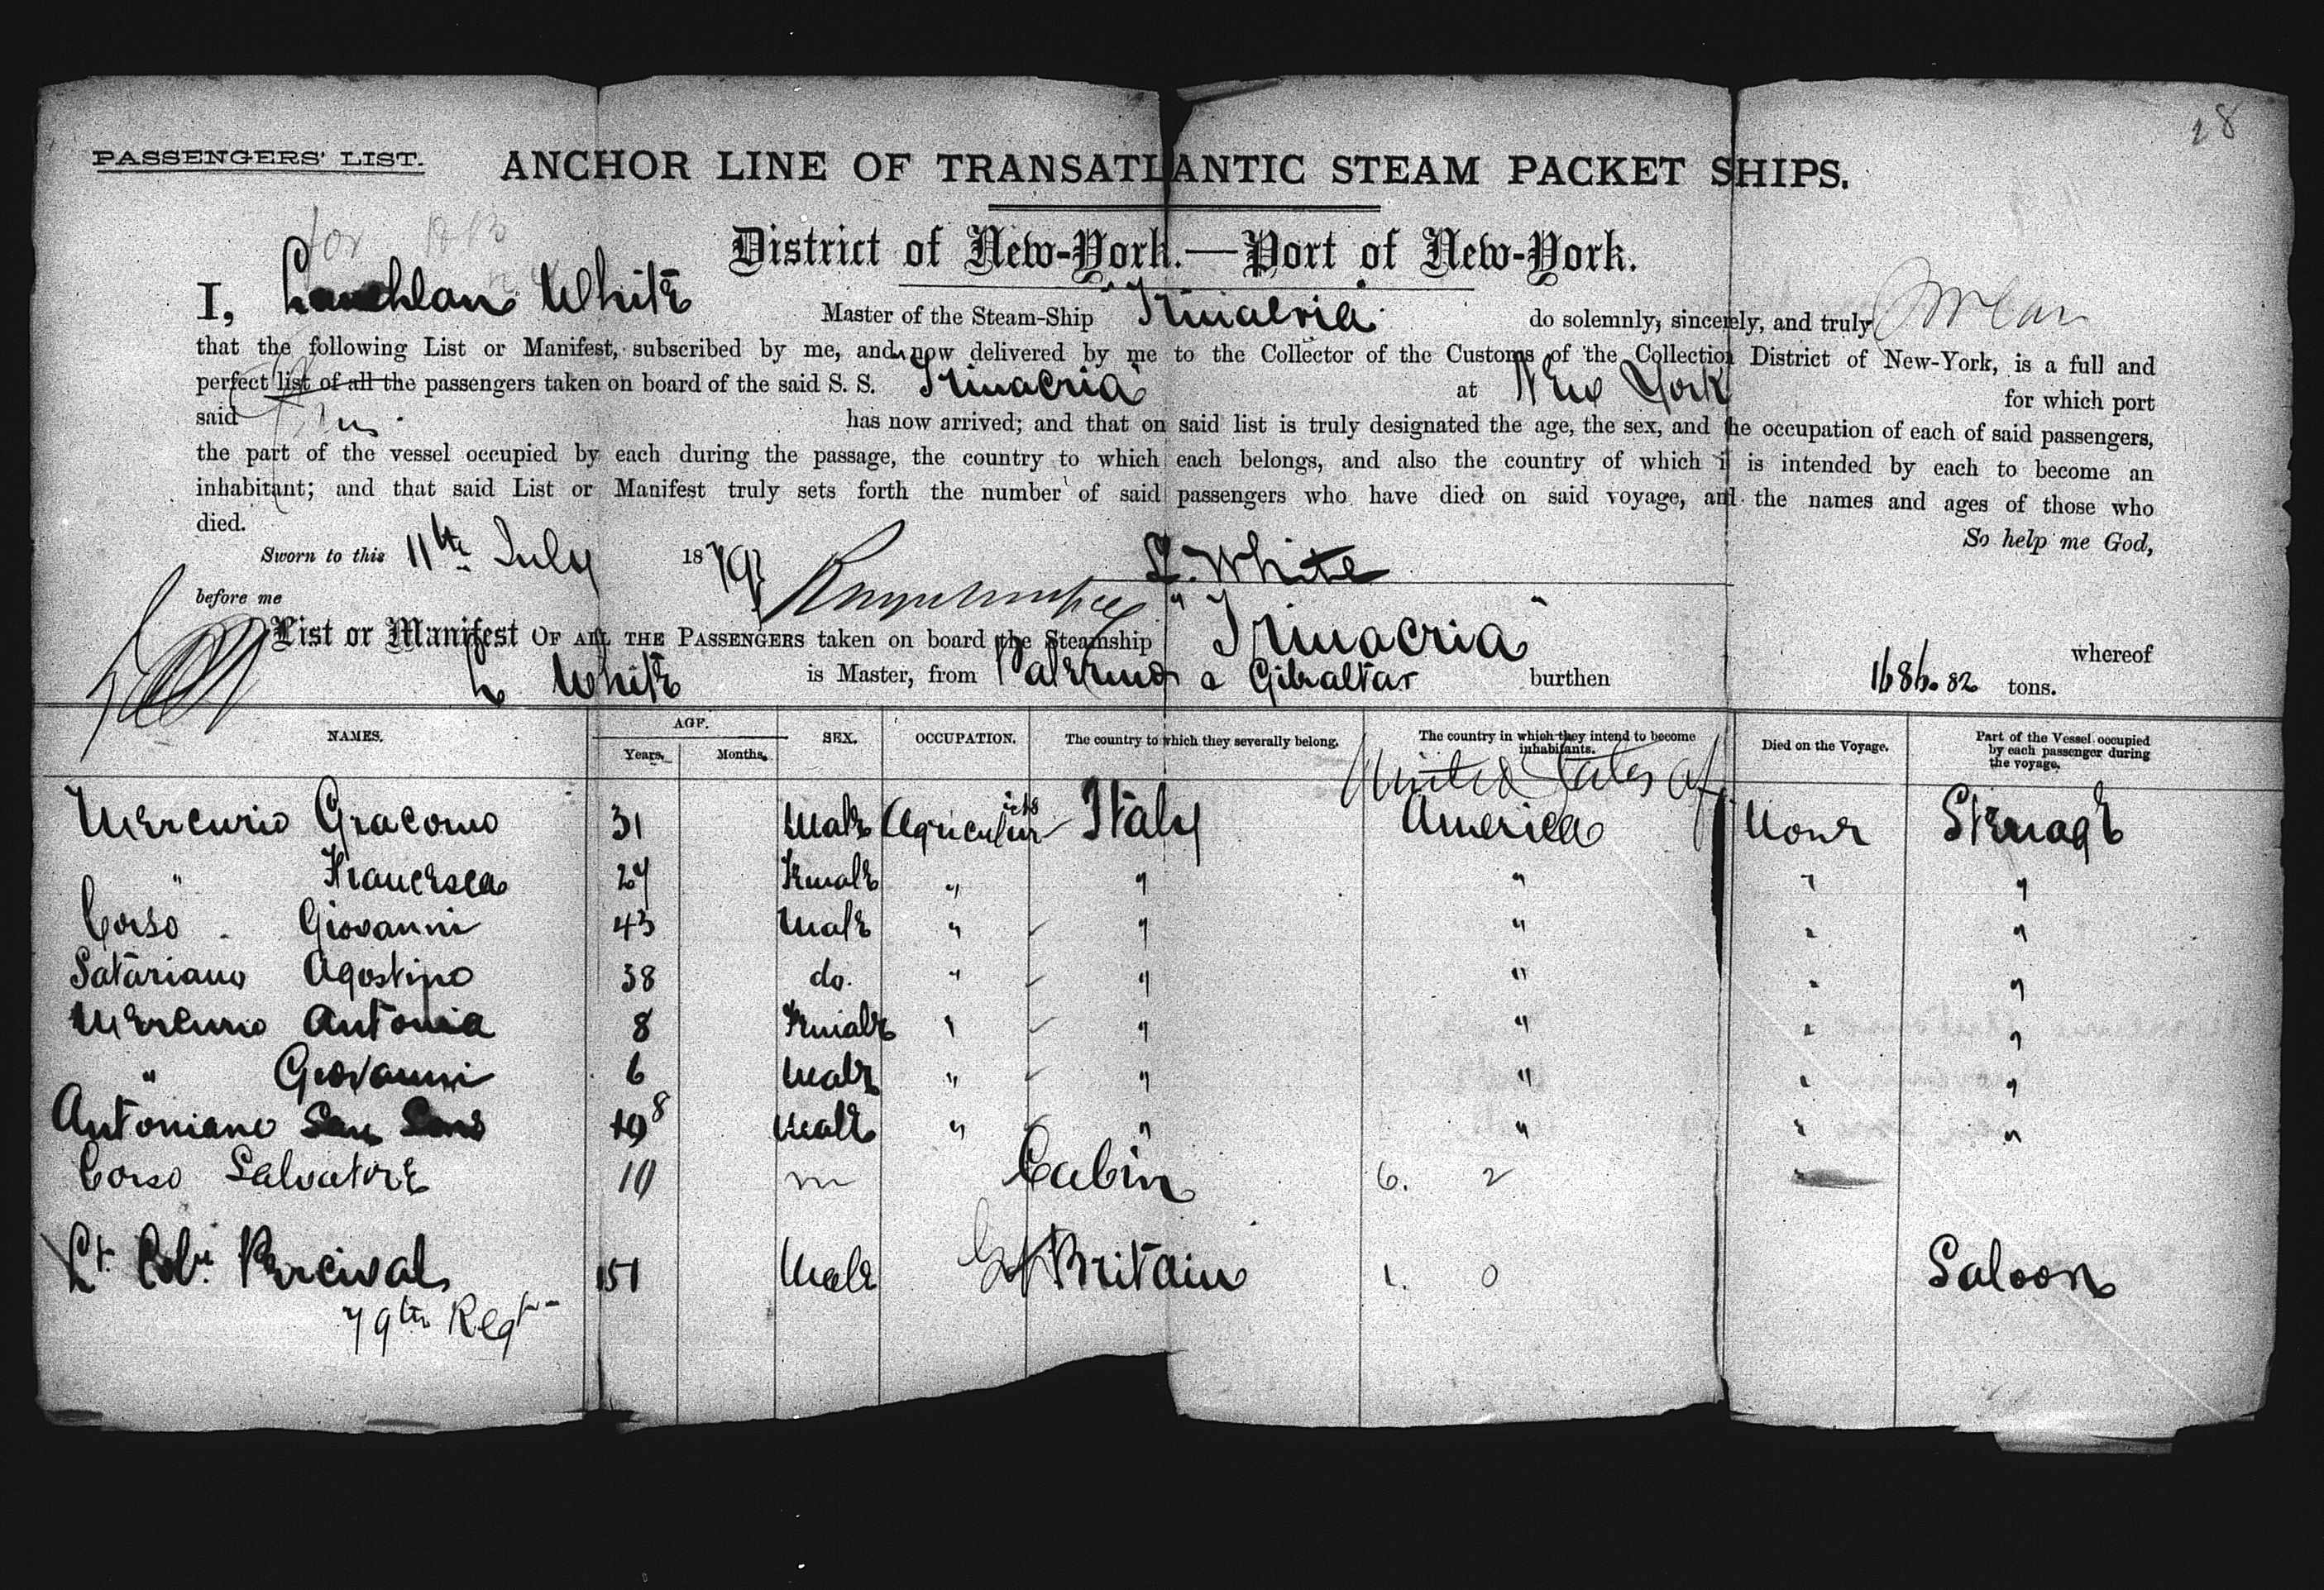 28
PASSENGERS' LIST.
ANCHOR LINE OF TRANSATLANTIC STEAM PACKET SHIPS.
for
District of New-York.—Port of New-York.
I, Lauchlan White Master of the Steam-Ship "Trinacria" do solemnly, sincerely, and truly swear
that the following List or Manifest, subscribed by me, and now delivered by me to the Collector of the Customs of the Collection District of New-York, is a full and
perfect list of all the passengers taken on board of the said S. S. Trinacria at New York for which port
said has now arrived; and that on said list is truly designated the age, the sex, and the occupation of each of said passengers,
the part of the vessel occupied by each during the passage, the country to which each belongs, and also the country of which it is intended by each to become an
inhabitant; and that said List or Manifest truly sets forth the number of said passengers who have died on said voyage, and the names and ages of those who
died.
So help me God,
Sworn to this 11th July 1879 L. White
before me
List or Manifest OF ALL THE PASSENGERS taken on board the Steamship "Trinacria" whereof
L White is Master, from Palermo & Gibraltar burthen 1686.82 tons.
NAMES. AGE. Years. Months. SEX. OCCUPATION. The country to which they severally belong. The country in which they intend to become inhabitants. Died on the Voyage. Part of the Vessel occupied by each passenger during the voyage.
United States of
Mercurio Giacomo 31 Male Italy America None Steerage
" Francesca 24 Female " " " " "
Corso Giovanni 43 Male " " " " "
Satariano Agostino 38 do. " " " " "
Mercurio Antonia 8 Female " " " " "
" Giovanni 6 Male " " " " "
Antoniano Male " " " " "
Corso Salvatore 10 m Cabin 6. 2 "
Lt. Col. Percival 51 Male Gt Britain 1. 0 Saloon
79th Regt